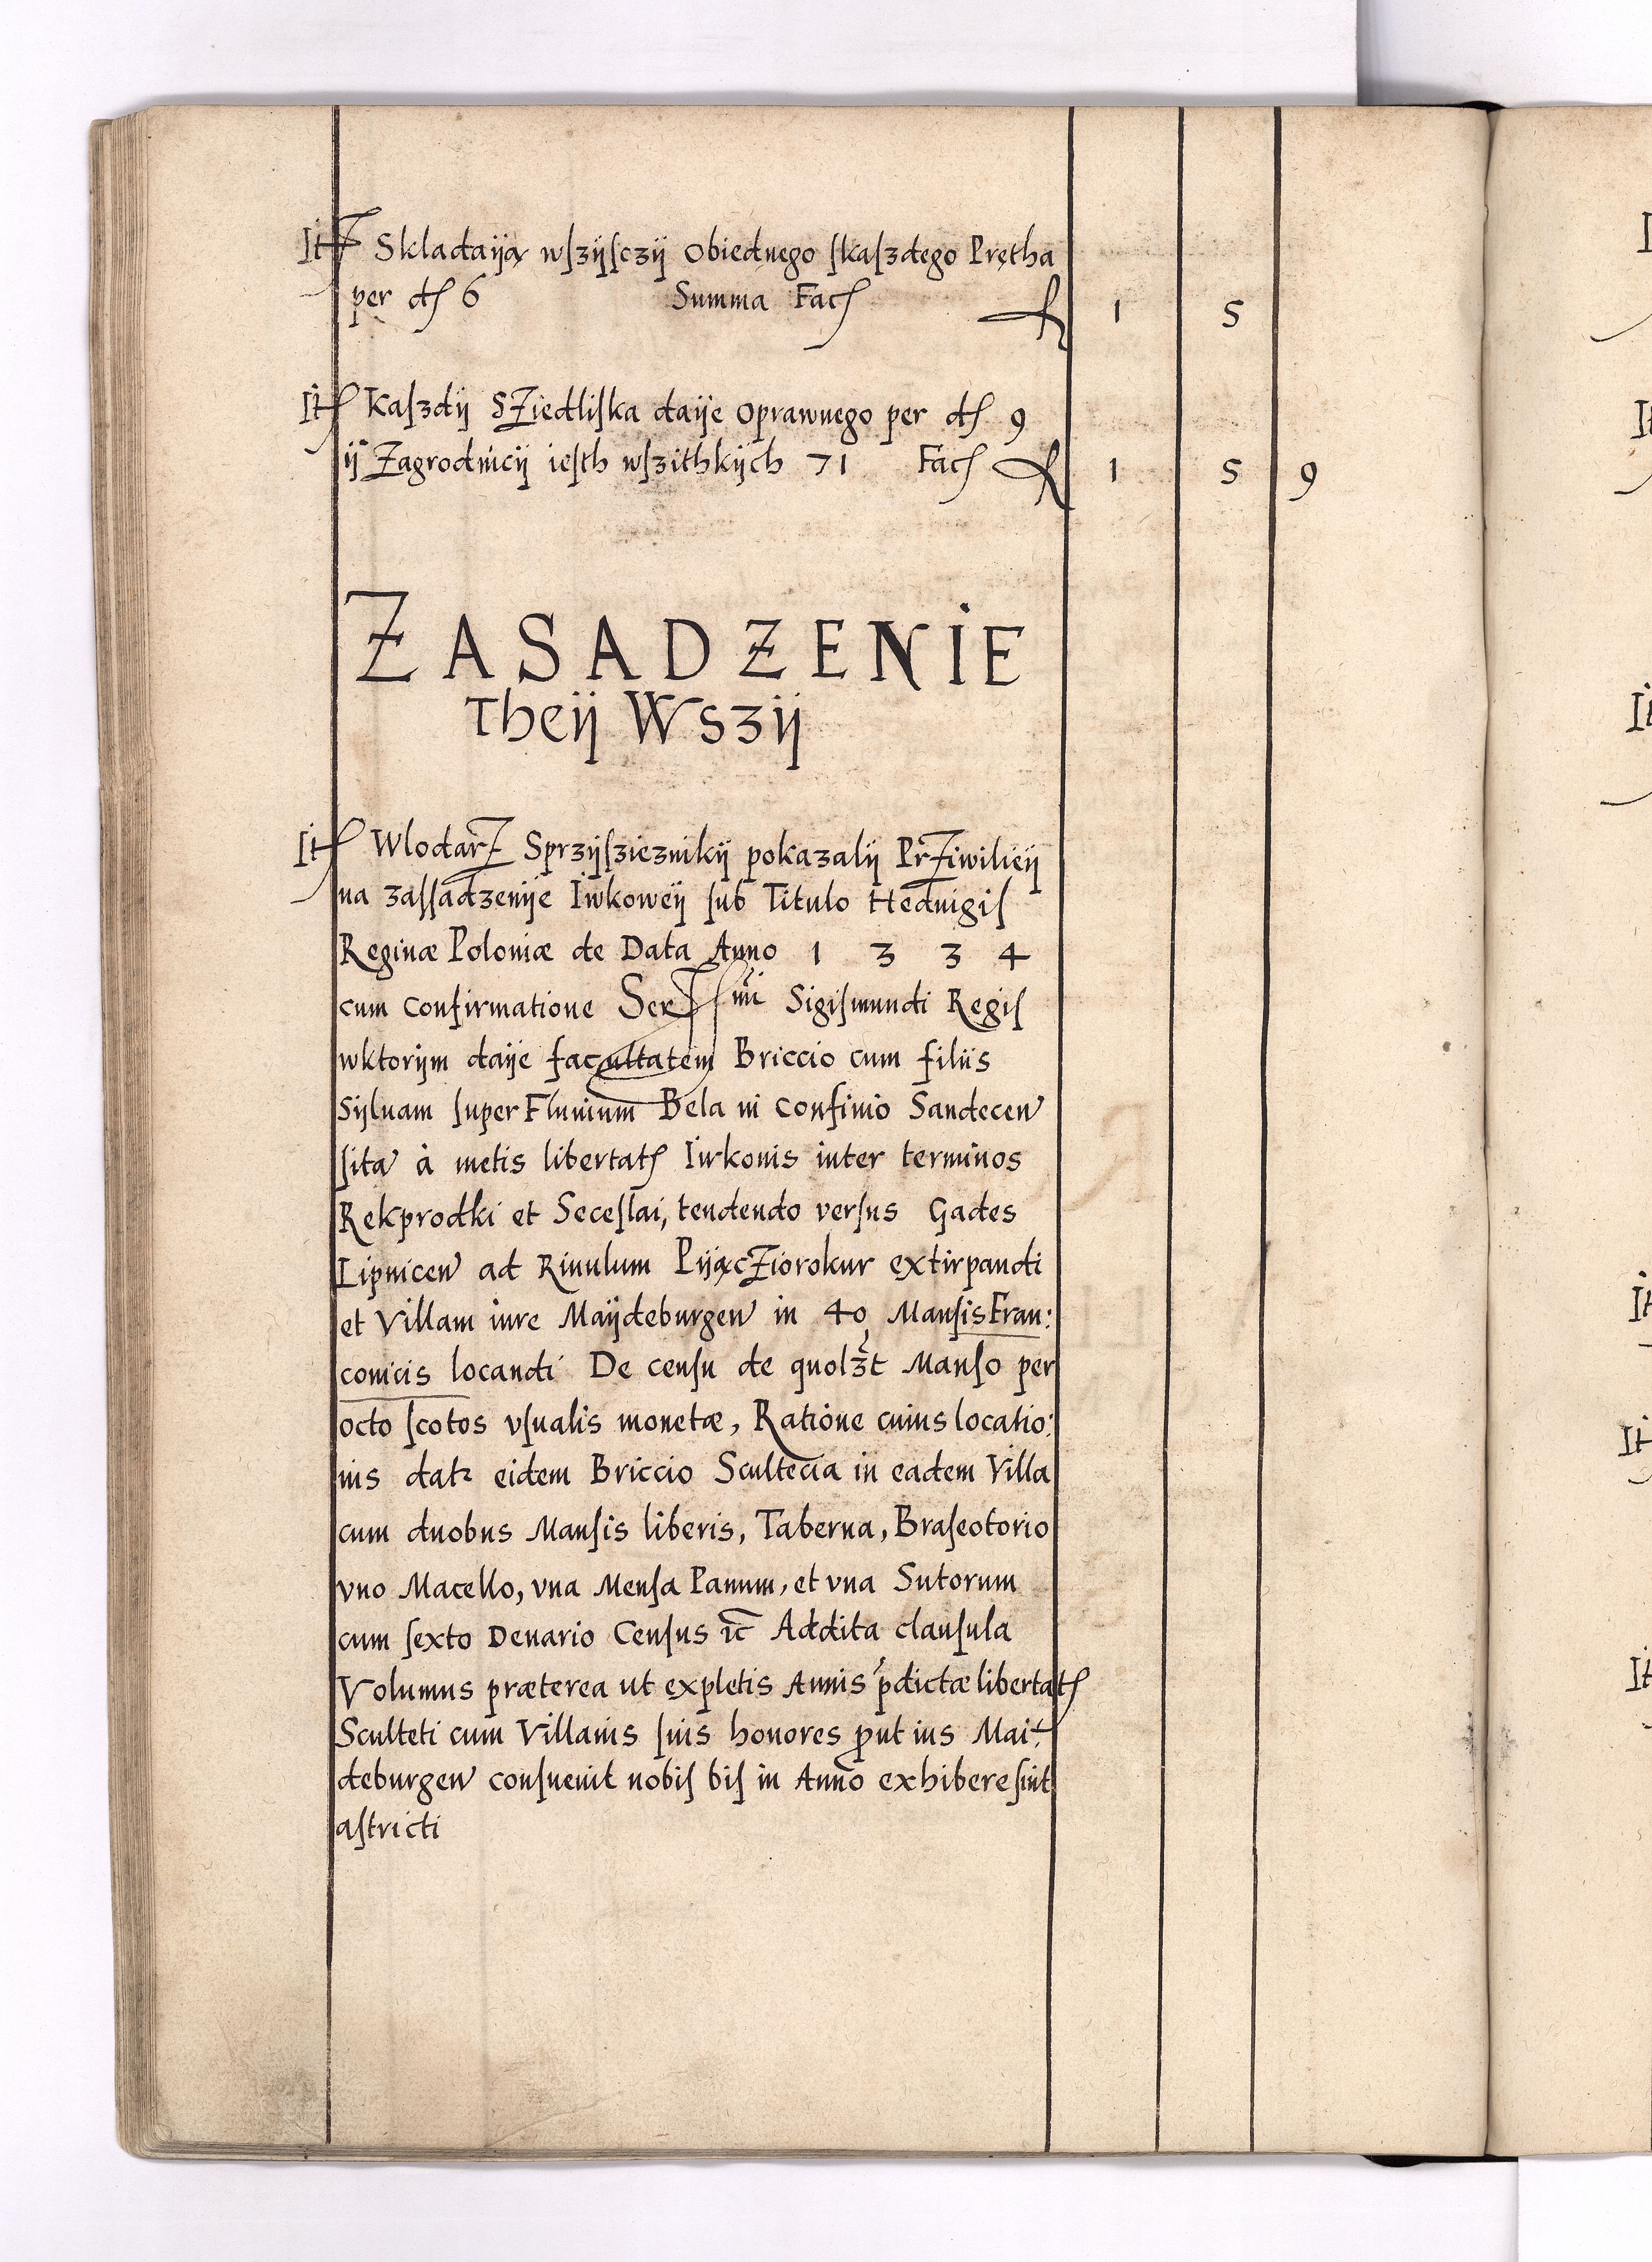 It Skladaiją wſzijſczij Obiednego ſkaſzdego Prętha
per dʃ 6 Summa Facʃ 1 5
Itʃ Kaſzdij SZiedliſka daije Oprawnego per dʃ 9
ij Zagrodnicij ieſth wſzithkijch 71 Facʃ 1 5 9
ZASADZENIE
Theij Wszij
Itʃ WlodarZ Sprzijſzieznikij pokazalij PrZiwilieij
na zaſſadzenije Iwkoweij ſub Titulo Heduigiſ
Reginæ Poloniæ de Data Anno 1 3 3 4
cum Confirmatione Ser mi Sigiſmundi Regiſ
wktorijm daije facultatem Briccio cum filiis
Sijluam ſuper Fluuium Bela in Confinio Sandecen
ſita à metis libertatʃ Iwkonis inter terminos
Rekprodki et Seceſlai, tendendo verſus Gades
Lipnicen ad Riuulum PijącZiorokur extirpandi
et Villam iure Maijdeburgen in 40 Manſis Fran:
conicis locandi De cenſu de quolꝫt Manſo per
octo ſcotos vſualis monetæ, Ratione cuius locatio:
nis datꝛ eidem Briccio Scultecia in eadem Villa
cum duobus Manſis liberis, Taberna, Braſeotorio
vno Macello, vna Menſa Panum, et vna Sutorum
cum ſexto Denario Cenſus ic̄ Addita clauſula
Volumus præterea ut expletis Annis p̄dictæ libertatʃ
Sculteti cum Villanis ſuis honores ꝓut ius Mai:
deburgen conſueuit nobiſ biſ in Anno exhibere ſint
aſtricti